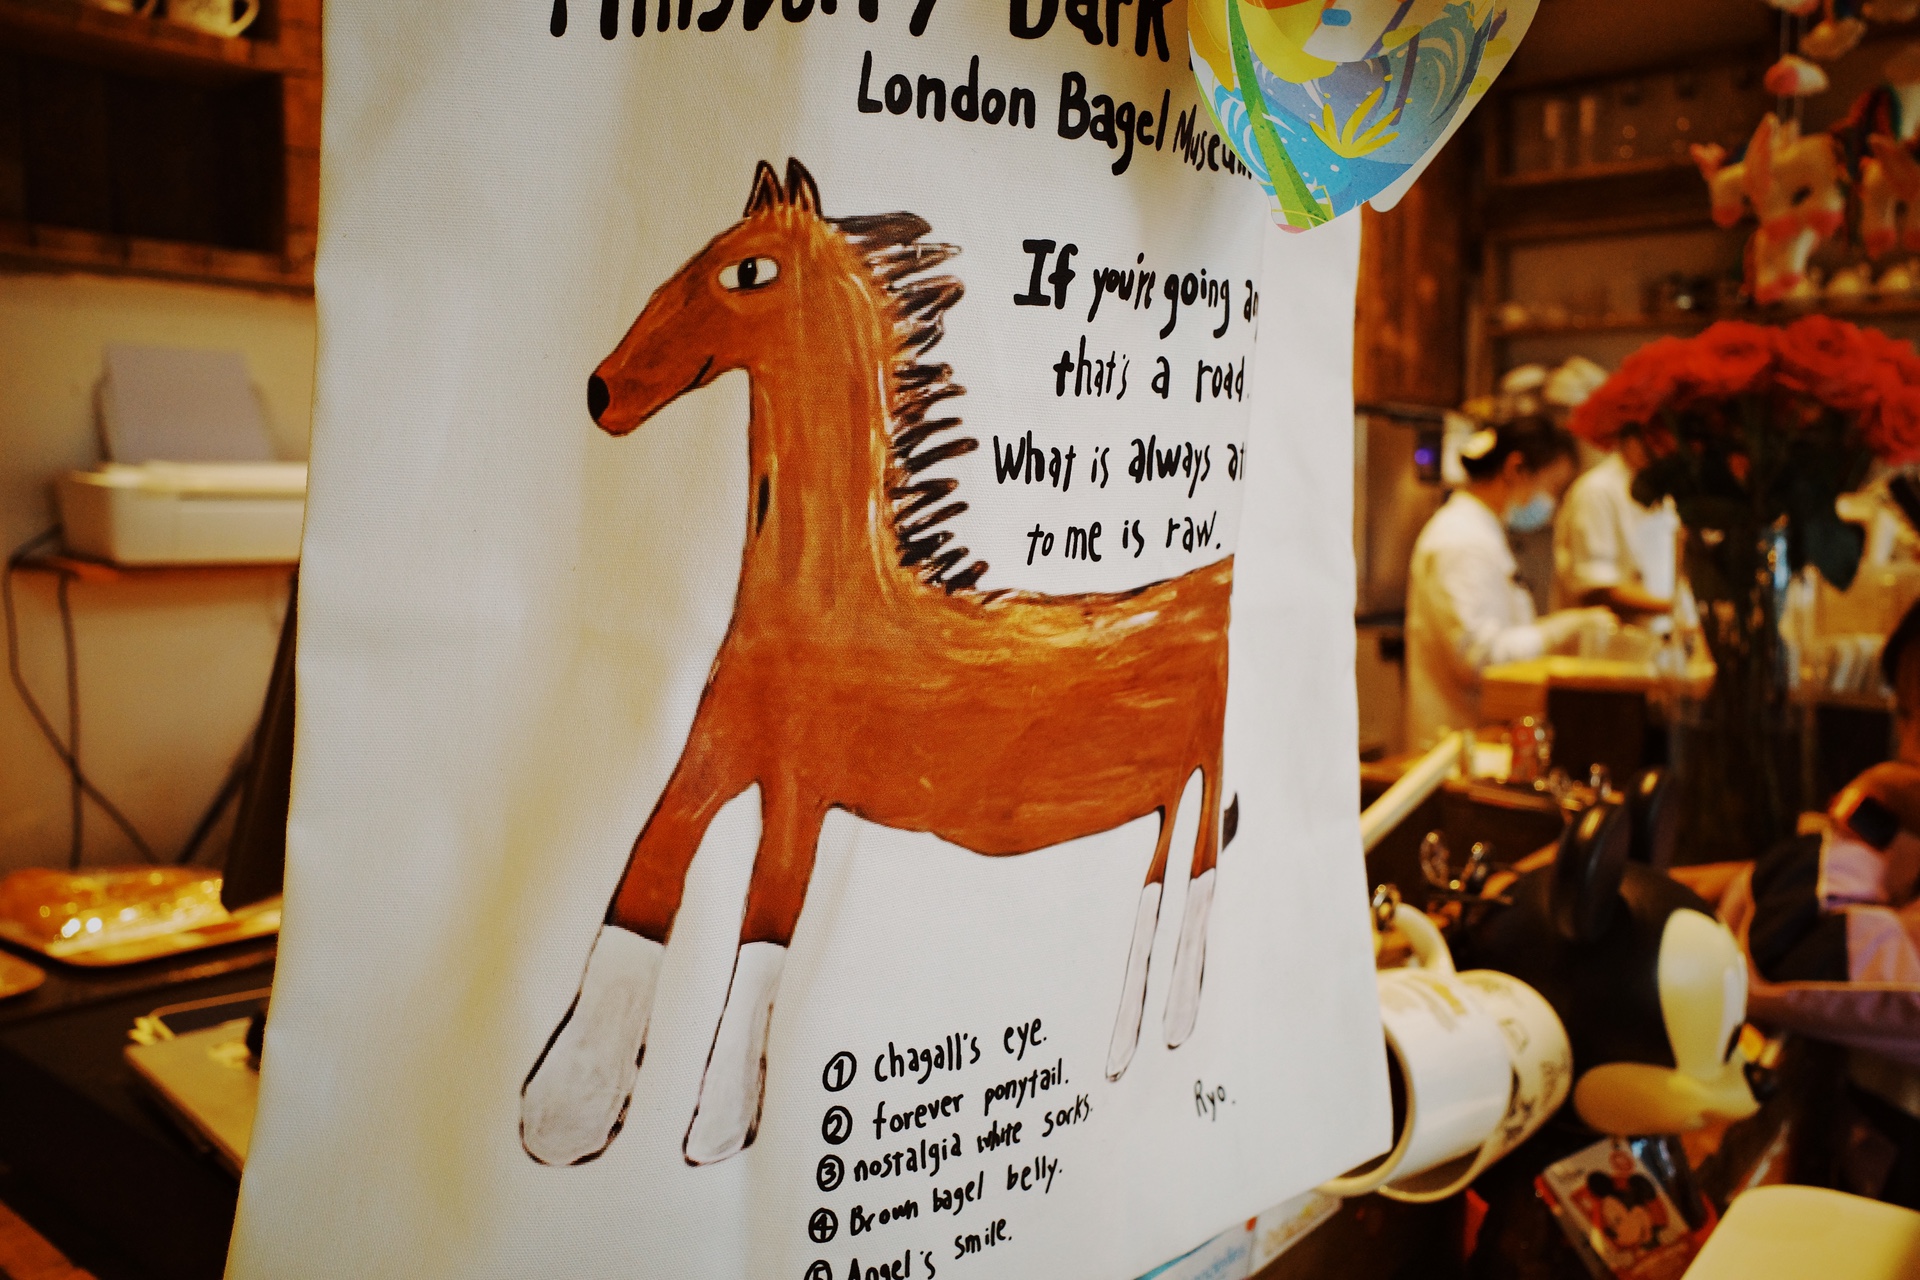 London Bagel Museum
If you're going
that's a road.
What is always at
to me is raw.
① chagall's eye.
② forever ponytail.
③ nostalgia white socks.
④ Brown bagel belly.
⑤ Angel's smile.
Ryo.